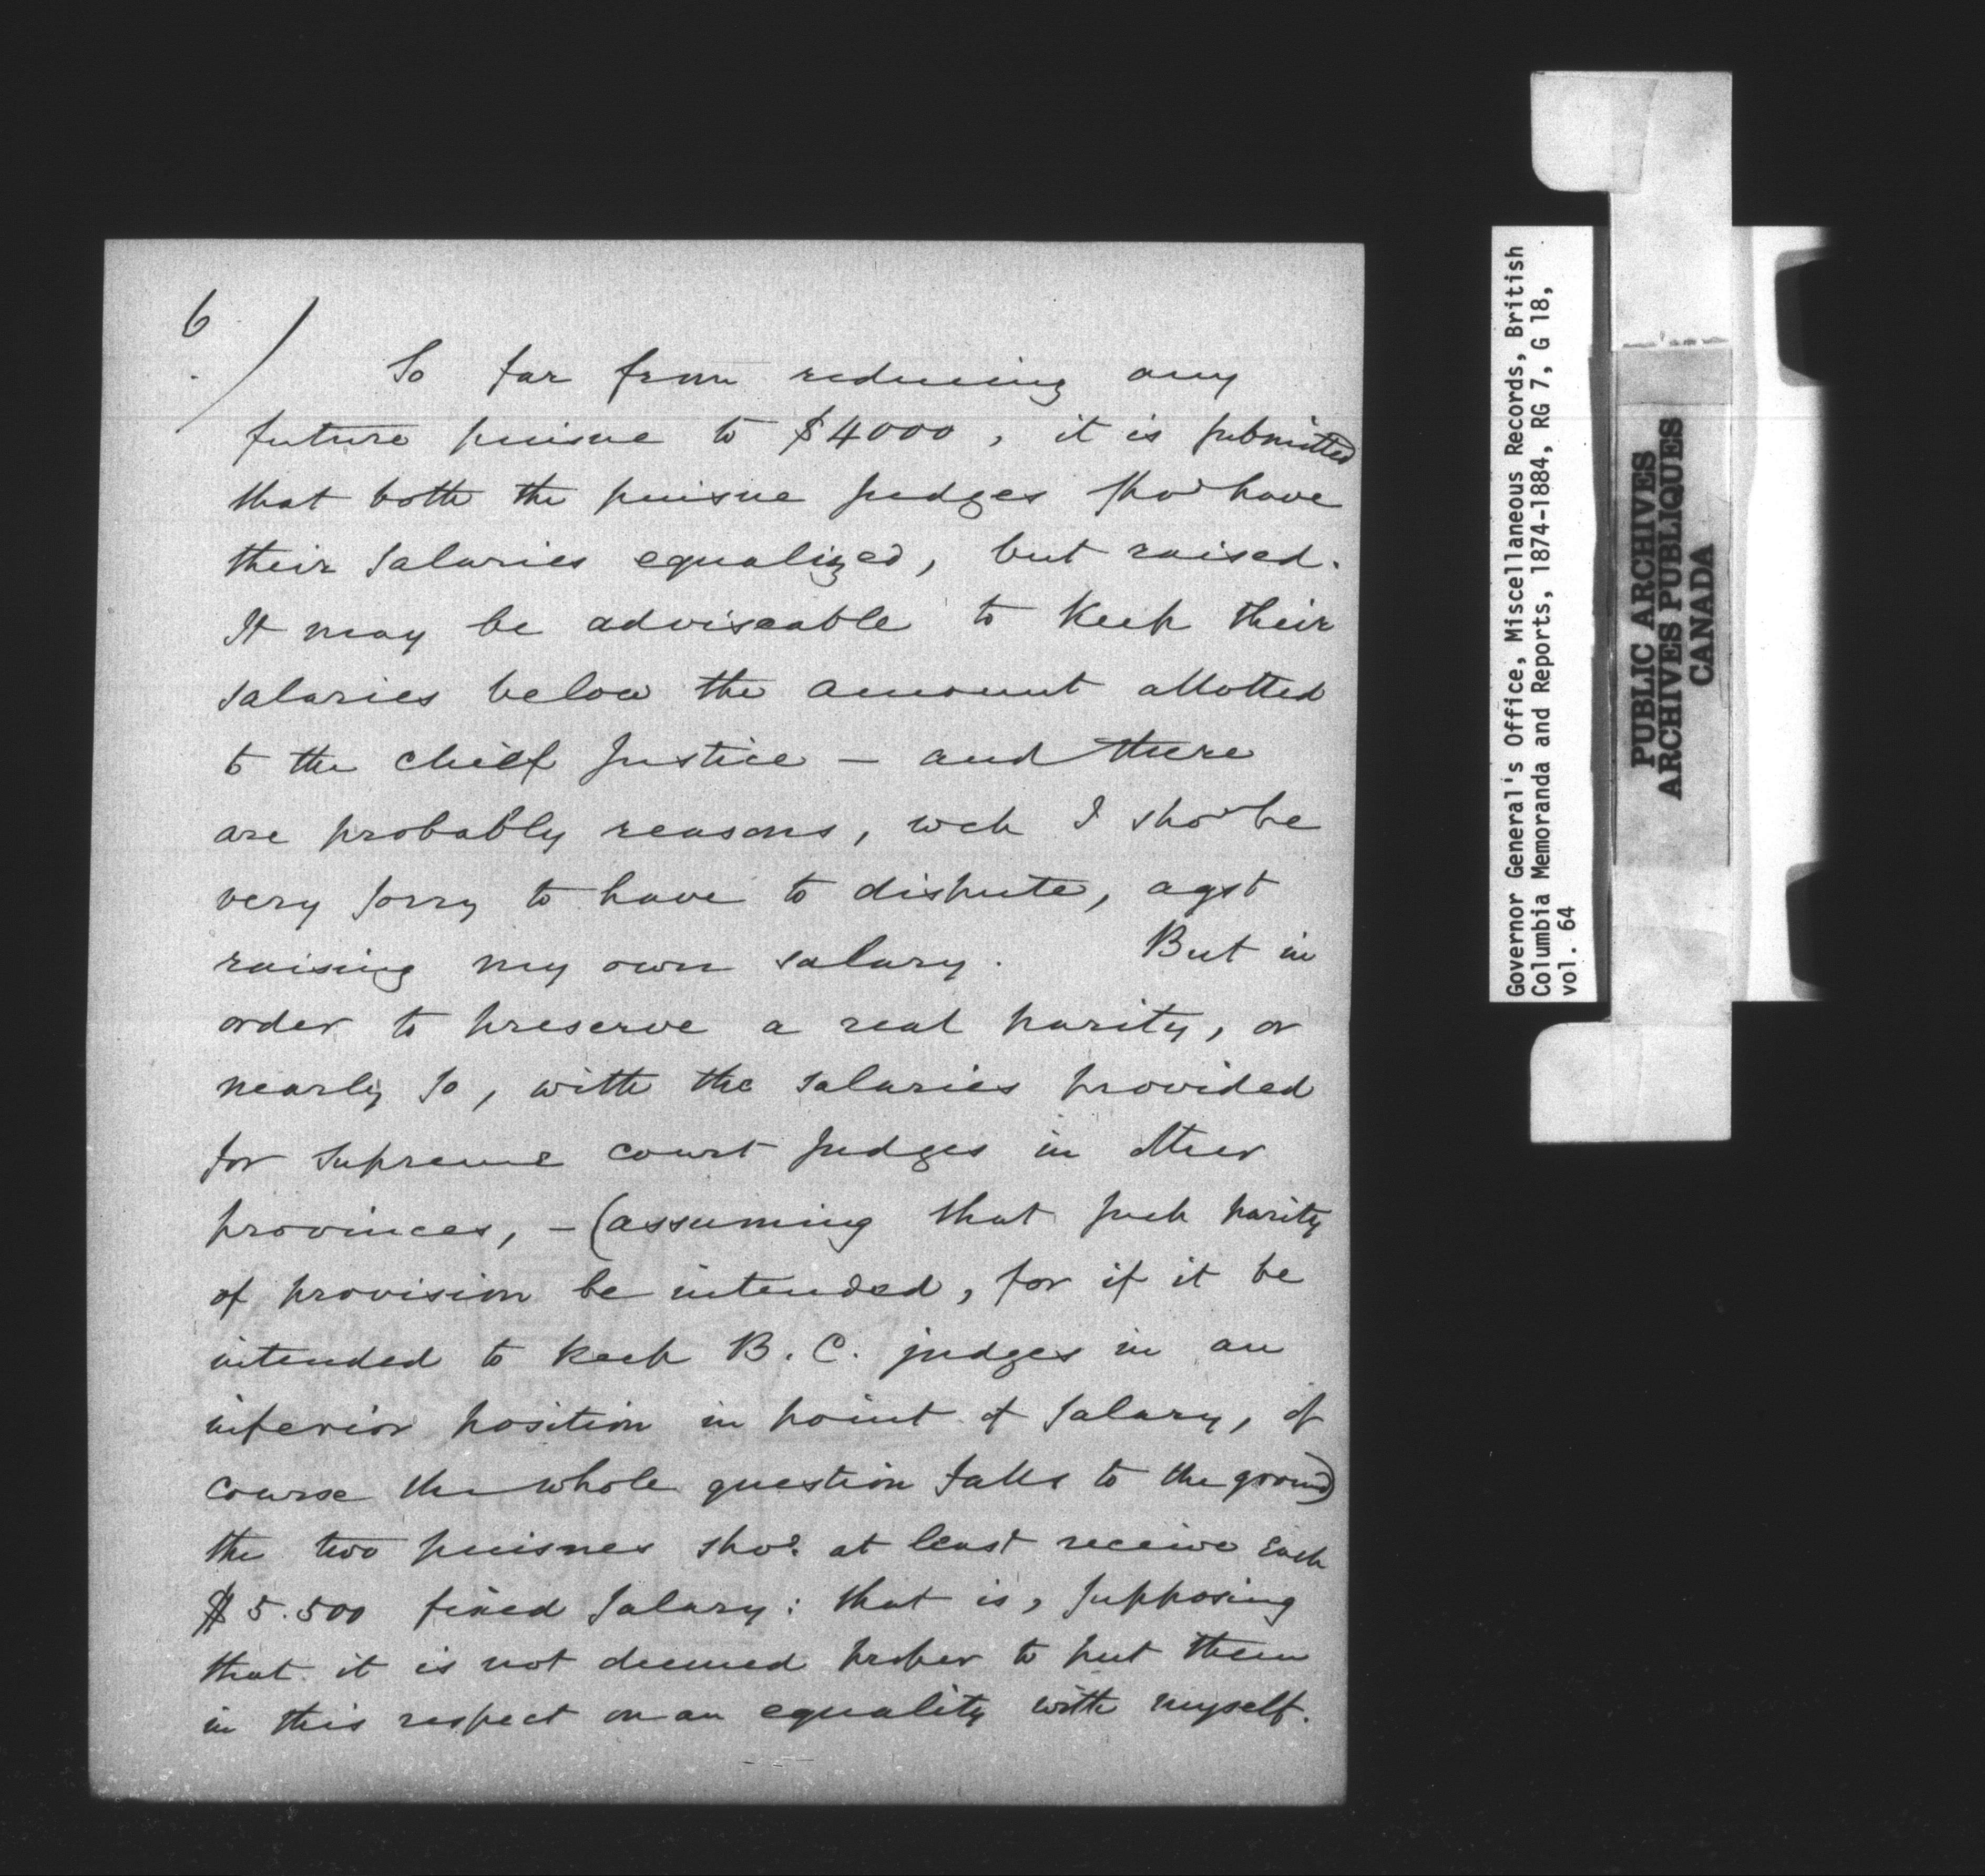 6/
So far from reducing any
future puisne to $4000, it is submitted
that both the puisne judges shod have
their salaries equalized, but raised.
It may be adviseable to keep their
salaries below the amount allotted
to the chief Justice - and there
are probably reasons, wch I shod be
very sorry to have to dispute, agst
raising my own salary. But in
order to preserve a real parity, or
nearly so, with the salaries provided
for supreme court judges in other
provinces, - (assuming that such parity
of provision be intended, for if it be
intended to keep B.C. judges in an
inferior position in point of salary, of
course the whole question falls to the ground)
the two puisnes shod. at least receive each
$5.500 fixed salary: that is, supposing
that it is not deemed proper to put them
in this respect on an equality with myself.
Governor General's Office, Miscellaneous Records, British
Columbia Memoranda and Reports, 1874-1884, RG 7, G 18,
vol. 64
PUBLIC ARCHIVES
ARCHIVES PUBLIQUES
CANADA